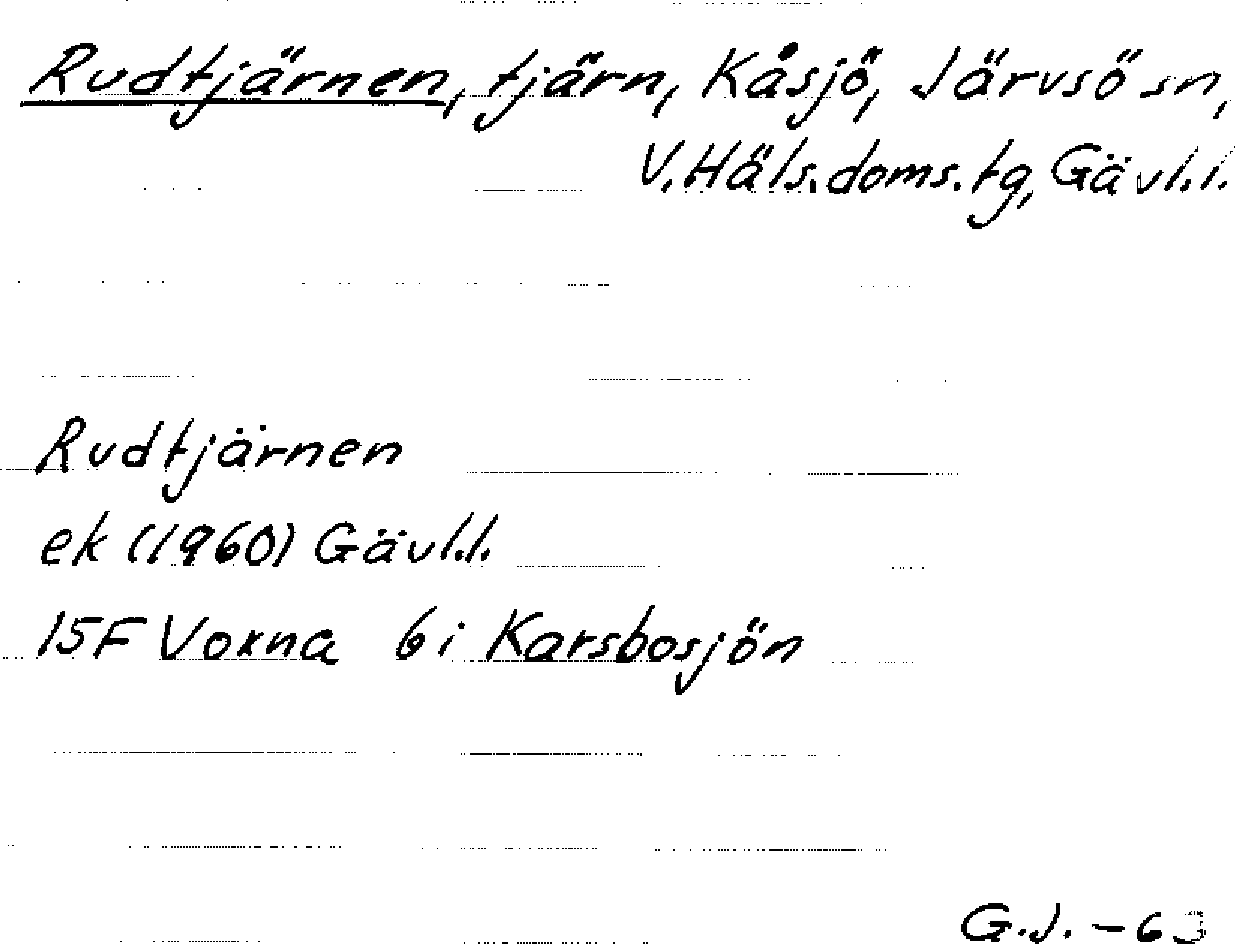 Rudtjärnen, tjärn, Kåsjö, Järvsö sn,
V. Häls. doms. tg, Gävl. l.
Rudtjärnen
ek (1960) Gävl. l.
15F Voxna 6i Karsbosjön
G.J. - 63